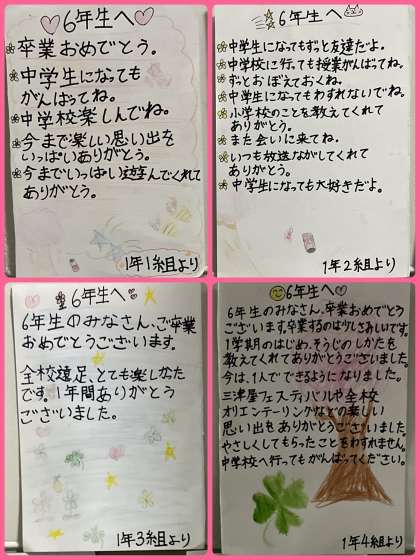 ♡6年生へ♡
卒業おめでとう。
中学生になっても
がんばってね。
中学校楽しんでね。
今まで楽しい思い出を
いっぱいありがとう。
今までいっぱい遊んでくれて
ありがとう。
1年1組より
6年生へ
中学生になってもずっと友達だよ。
中学校に行っても授業がんばってね。
ずっとおぼえておくね。
中学生になってもわすれないでね。
小学校のことを教えてくれて
ありがとう。
また会いに来てね。
いつも放送ながしてくれて
ありがとう。
中学生になっても大好きだよ。
1年2組より
♡6年生へ
6年生のみなさん、ご卒業
おめでとうございます。
全校遠足、とても楽しかた
です。1年間ありがとう
ございました。
1年3組より
6年生へ♡
6年生のみなさん、卒業おめでとう
ございます。卒業するのは少しさみしいです。
1学期のはじめ、そうじのしかたを
教えてくれてありがとうございました。
今は、1人でできるようになりました。
三津屋フェスティバルや全校
オリエンテーリングなどの楽しい
思い出をありがとうございました。
やさしくしてもらったことをわすれません。
中学校へ行ってもがんばってください。
1年4組より